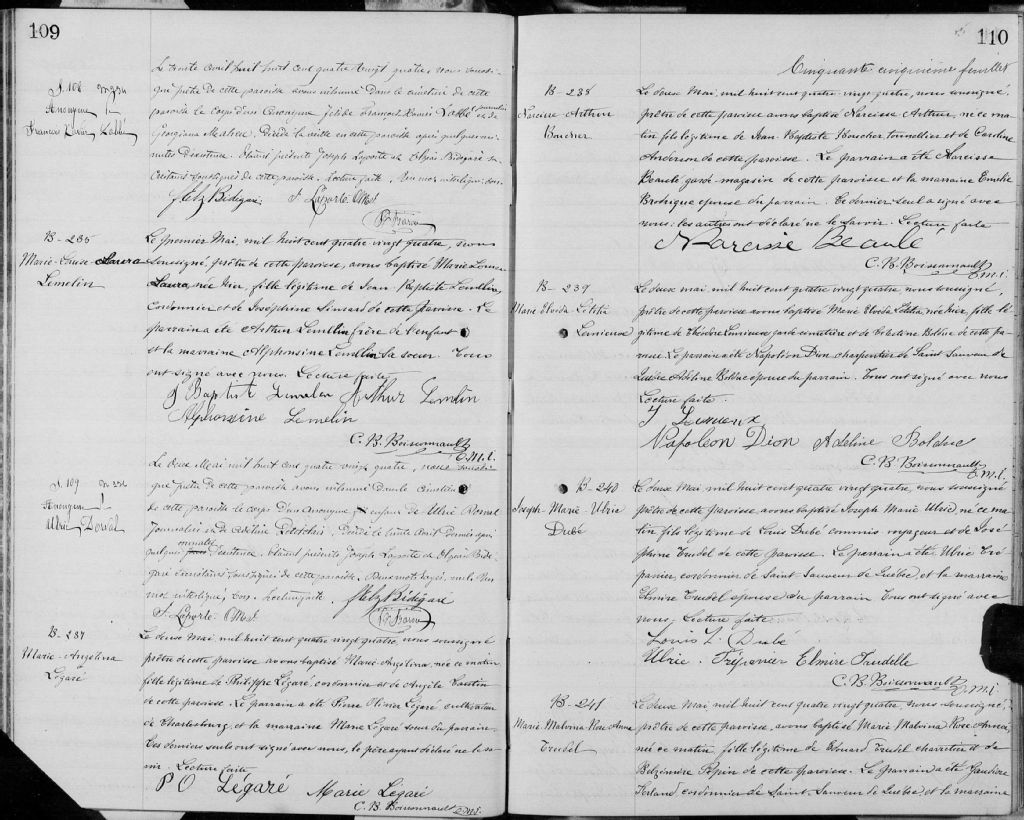 109
Le trente avril huit huit cent quatre vingt quatre, nous soussi-
gné prêtre de cette paroisse avons inhumé dans le cimetière de cette
paroisse le corps d'un Anonyme fils de François Xavier Labbé et de
Georgiana décédé la veille en cette paroisse après quelques mi-
nutes d'existence. Étaient présents Joseph Laporte et Elzéar Bédigaré
de cette paroisse. Lecture faite. Un mot interligné bon.
S. 108
Anonyme
François Xavier Labbé
Elz Bédigaré J. Laporte
B - 235
Marie-Louise Laura
Lemelin
Le premier Mai, mil huit cent quatre vingt quatre, nous
soussigné, prêtre de cette paroisse, avons baptisé Marie Louise
Laura, née hier, fille légitime de Jean-Baptiste Lemelin,
Cordonnier et de Joséphine Simard de cette paroisse. Le
parrain a été Arthur Lemelin frère de l'enfant
et la marraine Alphonsine Lemelin sa soeur. Tous
ont signé avec nous. Lecture faite
J Baptist Lemelin Arthur Lemelin
Alphonsine Lemelin
C. B. Boissonnault
P.M.I.
S. 109
Anonyme
Ulric Dorval
Le deux Mai mil huit cent quatre vingt quatre, nous soussi-
gné prêtre de cette paroisse avons inhumé dans le cimetière
de cette paroisse le corps d'un Anonyme enfant de Ulric Dorval
Journalier et de décédé le trente Avril dernier après
quelques minutes d'existence. Étaient présents Joseph Laporte et Elzéar Bédi-
garé de cette paroisse. Deux mots rayés nuls. Un
mot interligné, bon. Lecture faite. Elz Bédigaré
J. Laporte
B - 237
Marie-Angelina
Légaré
Le deux Mai, mil huit cent quatre vingt quatre, nous soussigné
prêtre de cette paroisse avons baptisé Marie-Angelina, née ce matin
fille légitime de Philippe Légaré, cordonnier et de Angèle
de cette paroisse. Le parrain a été Pierre Olivier Légaré cultivateur
de Charlesbourg et la marraine Marie Légaré soeur du parrain.
Ces derniers seuls ont signé avec nous, le père ayant déclaré ne le sa-
voir. Lecture faite
P O Légaré Marie Légaré
C. B. Boissonnault P.M.I.
110
Cinquante cinquième feuillet
B - 238
Narcisse Arthur
Boucher
Le deux Mai, mil huit cent quatre vingt quatre, nous soussigné
prêtre de cette paroisse avons baptisé Narcisse Arthur, né ce ma-
tin fils légitime de Jean Baptiste Boucher tonnellier et de Caroline
Anderson de cette paroisse. Le parrain a été Narcisse
Beaulé, garde-magasin de cette paroisse et la marraine Emélie
Brodrique épouse du parrain. Ce dernier seul a signé avec
nous; les autres ont déclaré ne le savoir. Lecture faite
Narcisse Beaulé
C. B. Boissonnault
P.M.I.
B - 239
Marie Elvida Letitia
Lemieux
Le deux mai, mil huit cent quatre vingt quatre, nous soussigné,
prêtre de cette paroisse avons baptisé Marie Elvida Letitia, née hier, fille lé-
gitime de Théodore Lemieux, garde cimetière et de Célestine Bolduc de cette pa-
roisse. Le parrain a été Napoléon Dion charpentier de Saint Sauveur de
Québec Adeline Bolduc épouse du parrain. Tous ont signé avec nous
Lecture faite.
T Lemieux
Napoléon Dion Adeline Bolduc
C. B. Boissonnault
P.M.I.
B - 240
Joseph-Marie-Ulric
Dubé
Le deux Mai, mil huit cent quatre vingt quatre, nous soussigné
prêtre de cette paroisse, avons baptisé Joseph Marie Ulric, né ce ma-
tin fils légitime de Louis Dubé commis voyageur et de José-
phine Trudel de cette paroisse. Le parrain a été Ulric Tré-
panier, cordonnier de Saint-Sauveur de Québec, et la marraine
Elmire Trudel épouse du parrain. Tous ont signé avec
nous. Lecture faite
Louis L. Dubé
Ulric Trépanier Elmire Trudelle
C. B. Boissonnault
P.M.I.
B - 241
Marie Malvina Rose Anna
Trudel
Le deux Mai, mil huit cent quatre vingt quatre, nous soussigné,
prêtre de cette paroisse, avons baptisé Marie Malvina Rose Anna,
née ce matin, fille légitime de Edouard Trudel charretier et de
Belzémire Pépin de cette paroisse. Le parrain a été Gaudiose
Ferland, cordonnier de Saint-Sauveur de Québec, et la marraine